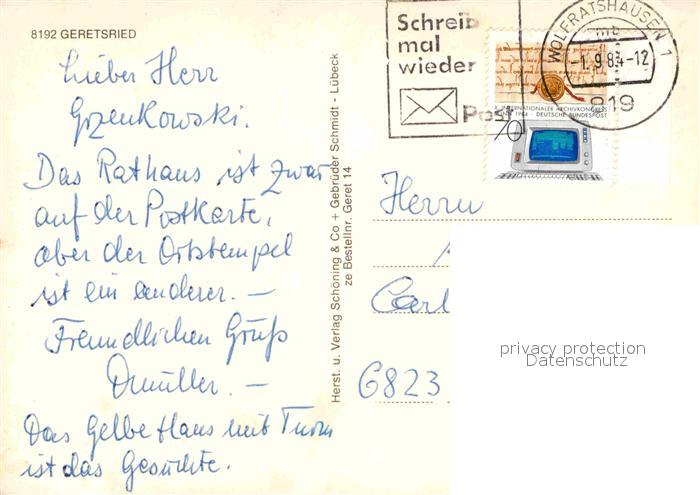 8192 GERETSRIED
Lieber Herr
Grzenkowski.
Das Rathaus ist zwar
auf der Postkarte,
aber der Ortstempel
ist ein anderer. —
Freundlichen Gruß
Das Gelbe Haus mit Turm
ist das Gesuchte.
Herst. u. Verlag Schöning & Co + Gebrüder Schmidt - Lübeck
ze Bestellnr. Geret 14
Schreib
mal
wieder
Post
WOLFRATSHAUSEN 1
mb
-1.9.84-12
819
X. INTERNATIONALER ARCHIVKONGRESS
BONN 1984 - DEUTSCHE BUNDESPOST
70
Herrn
Carl
6823
privacy protection
Datenschutz